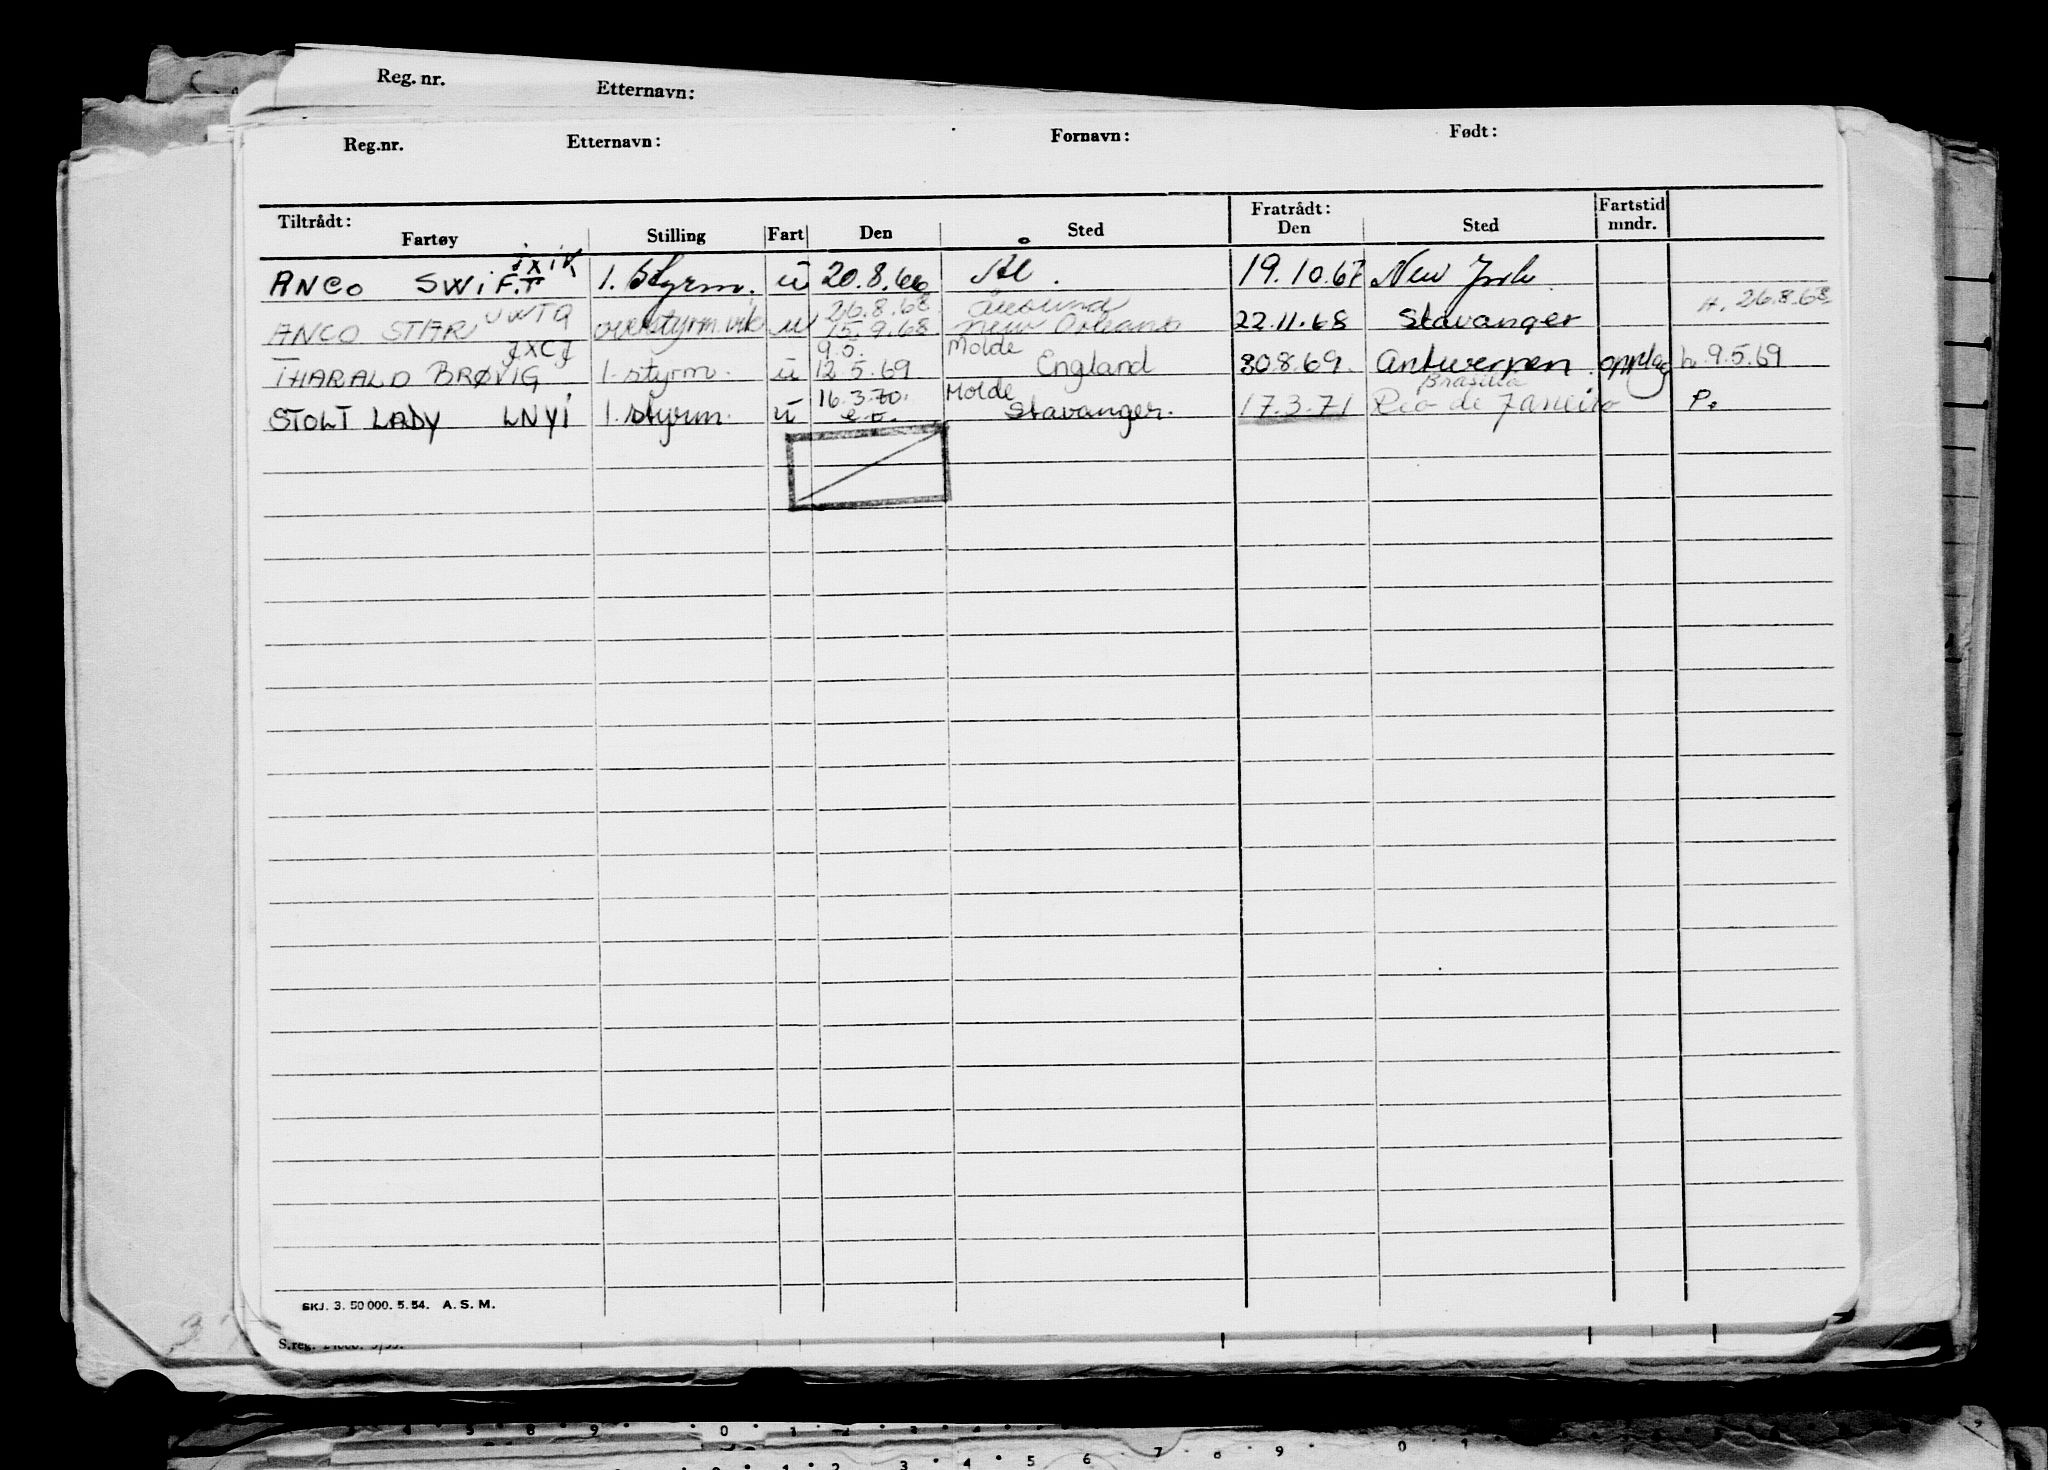 Reg. nr. Etternavn:
Reg.nr. Etternavn: Fornavn: Født:
Tiltrådt: Fratrådt: Fartstid
Fartøy Stilling Fart Den Sted Den Sted mndr.
JXIK
ANCO SWIFT 1. Styrm. u 20.8.66 Ål. 19.10.67 New York
JWTQ 26.8.68 Ålesund H. 26.8.68
ANCO STAR overstyrm. vik u 15.9.68 New Orleans 22.11.68 Stavanger
JXCJ 9.5. Molde
THARALD BRØVIG 1. styrm. u 12.5.69 England 30.8.69. Antwerpen opplag h. 9.5.69
16.3.70. Molde Brasilia
STOLT LADY LNYI 1. styrm. u s.d. Stavanger. 17.3.71 Rio de Janeiro P.
SKJ. 3. 50 000. 5. 54. A. S. M.
S.reg.